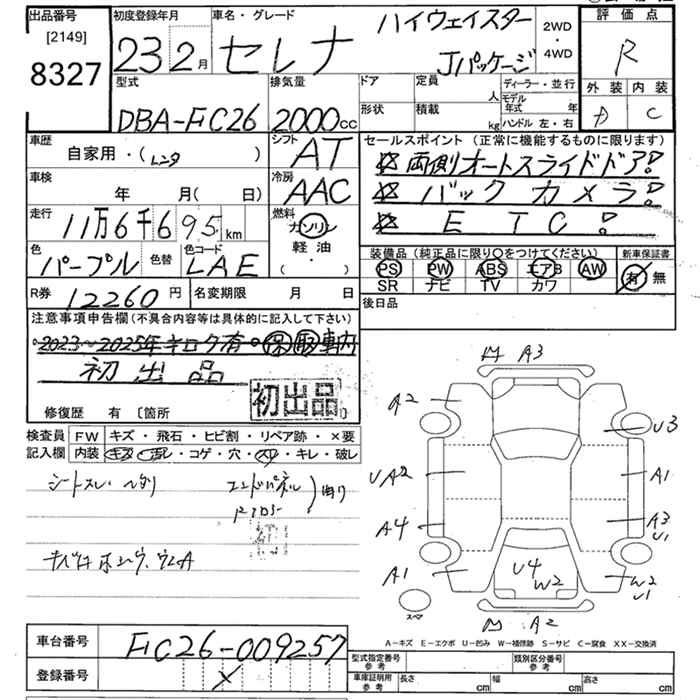 出品番号
[2149]
8327
初度登録年月
23 2月
車名・グレード
セレナ
ハイウェイスター
Jパッケージ
2WD
・
4WD
評価点
R
外装 内装
D C
型式
DBA-FC26
排気量
2000cc
ドア
定員
人
ディーラー・並行
モデル年式 年
形状
積載
kg
ハンドル 左・右
車歴
自家用・(レンタ )
シフト
AT
セールスポイント (正常に機能するものに限ります)
☆両側オートスライドドア!
☆バックカメラ!
☆ETC!
車検
年 月(日)
冷房
AAC
走行
11万6千695km
燃料
ガソリン
軽油
( ・ )
色
パープル
色替
色コード
LAE
装備品 (純正品に限り○をつけてください)
PS PW ABS エアB AW
SR ナビ TV カワ
新車保証書
有 無
R券 12260円
名変期限 月 日
後日品
注意事項申告欄 (不具合内容等は具体的に記入して下さい)
・2023~2025年キロク有・保取車内
初出品
初出品
修復歴 有 〔箇所 〕
検査員記入欄
FW キズ・飛石・ヒビ割・リペア跡・×要
内装 キズ・汚レ・コゲ・穴・スレ・キレ・破レ
シートスレ・ヘタリ
エンドパネル
A3
A2
U3
UA2
A1
A4
A3
U1
A1
U4
W2
W2
U1
A2
スペア
A-キズ E-エクボ U-凹み W-補修跡 S-サビ C-腐食 XX-交換済
車台番号 FC26-009257
登録番号 X
型式指定番号 参考
類別区分番号 参考
車庫証明用 参考
長さ cm
幅 cm
高さ cm